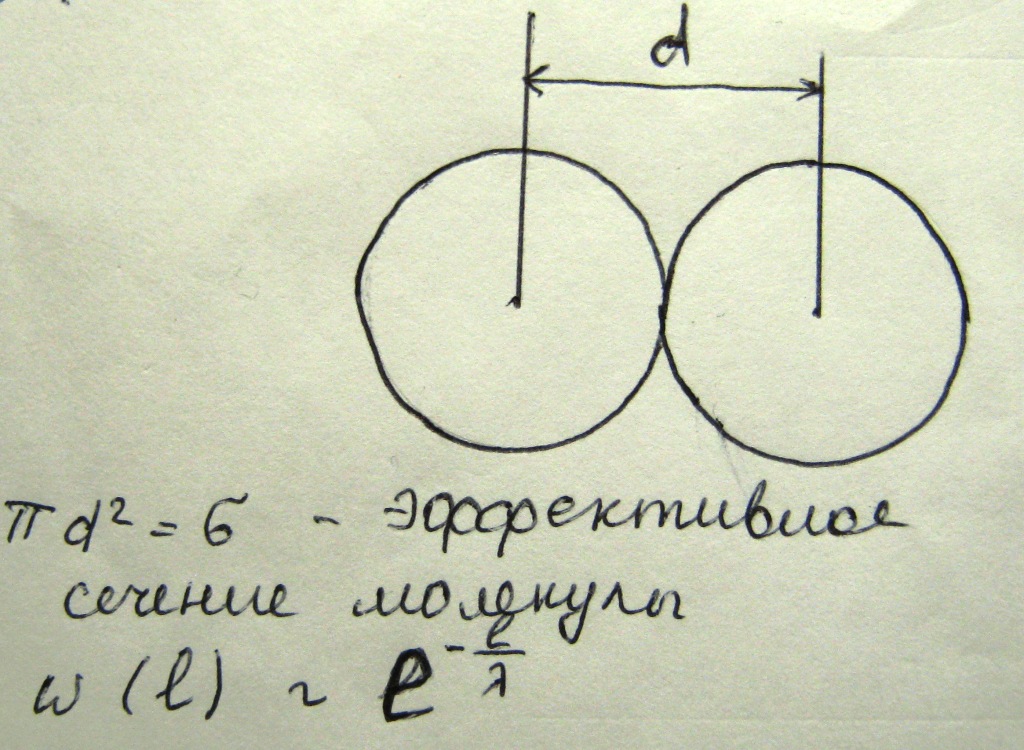 d
πd² = σ - эффективное
сечение молекулы
w(l) ~ e^{-l/λ}